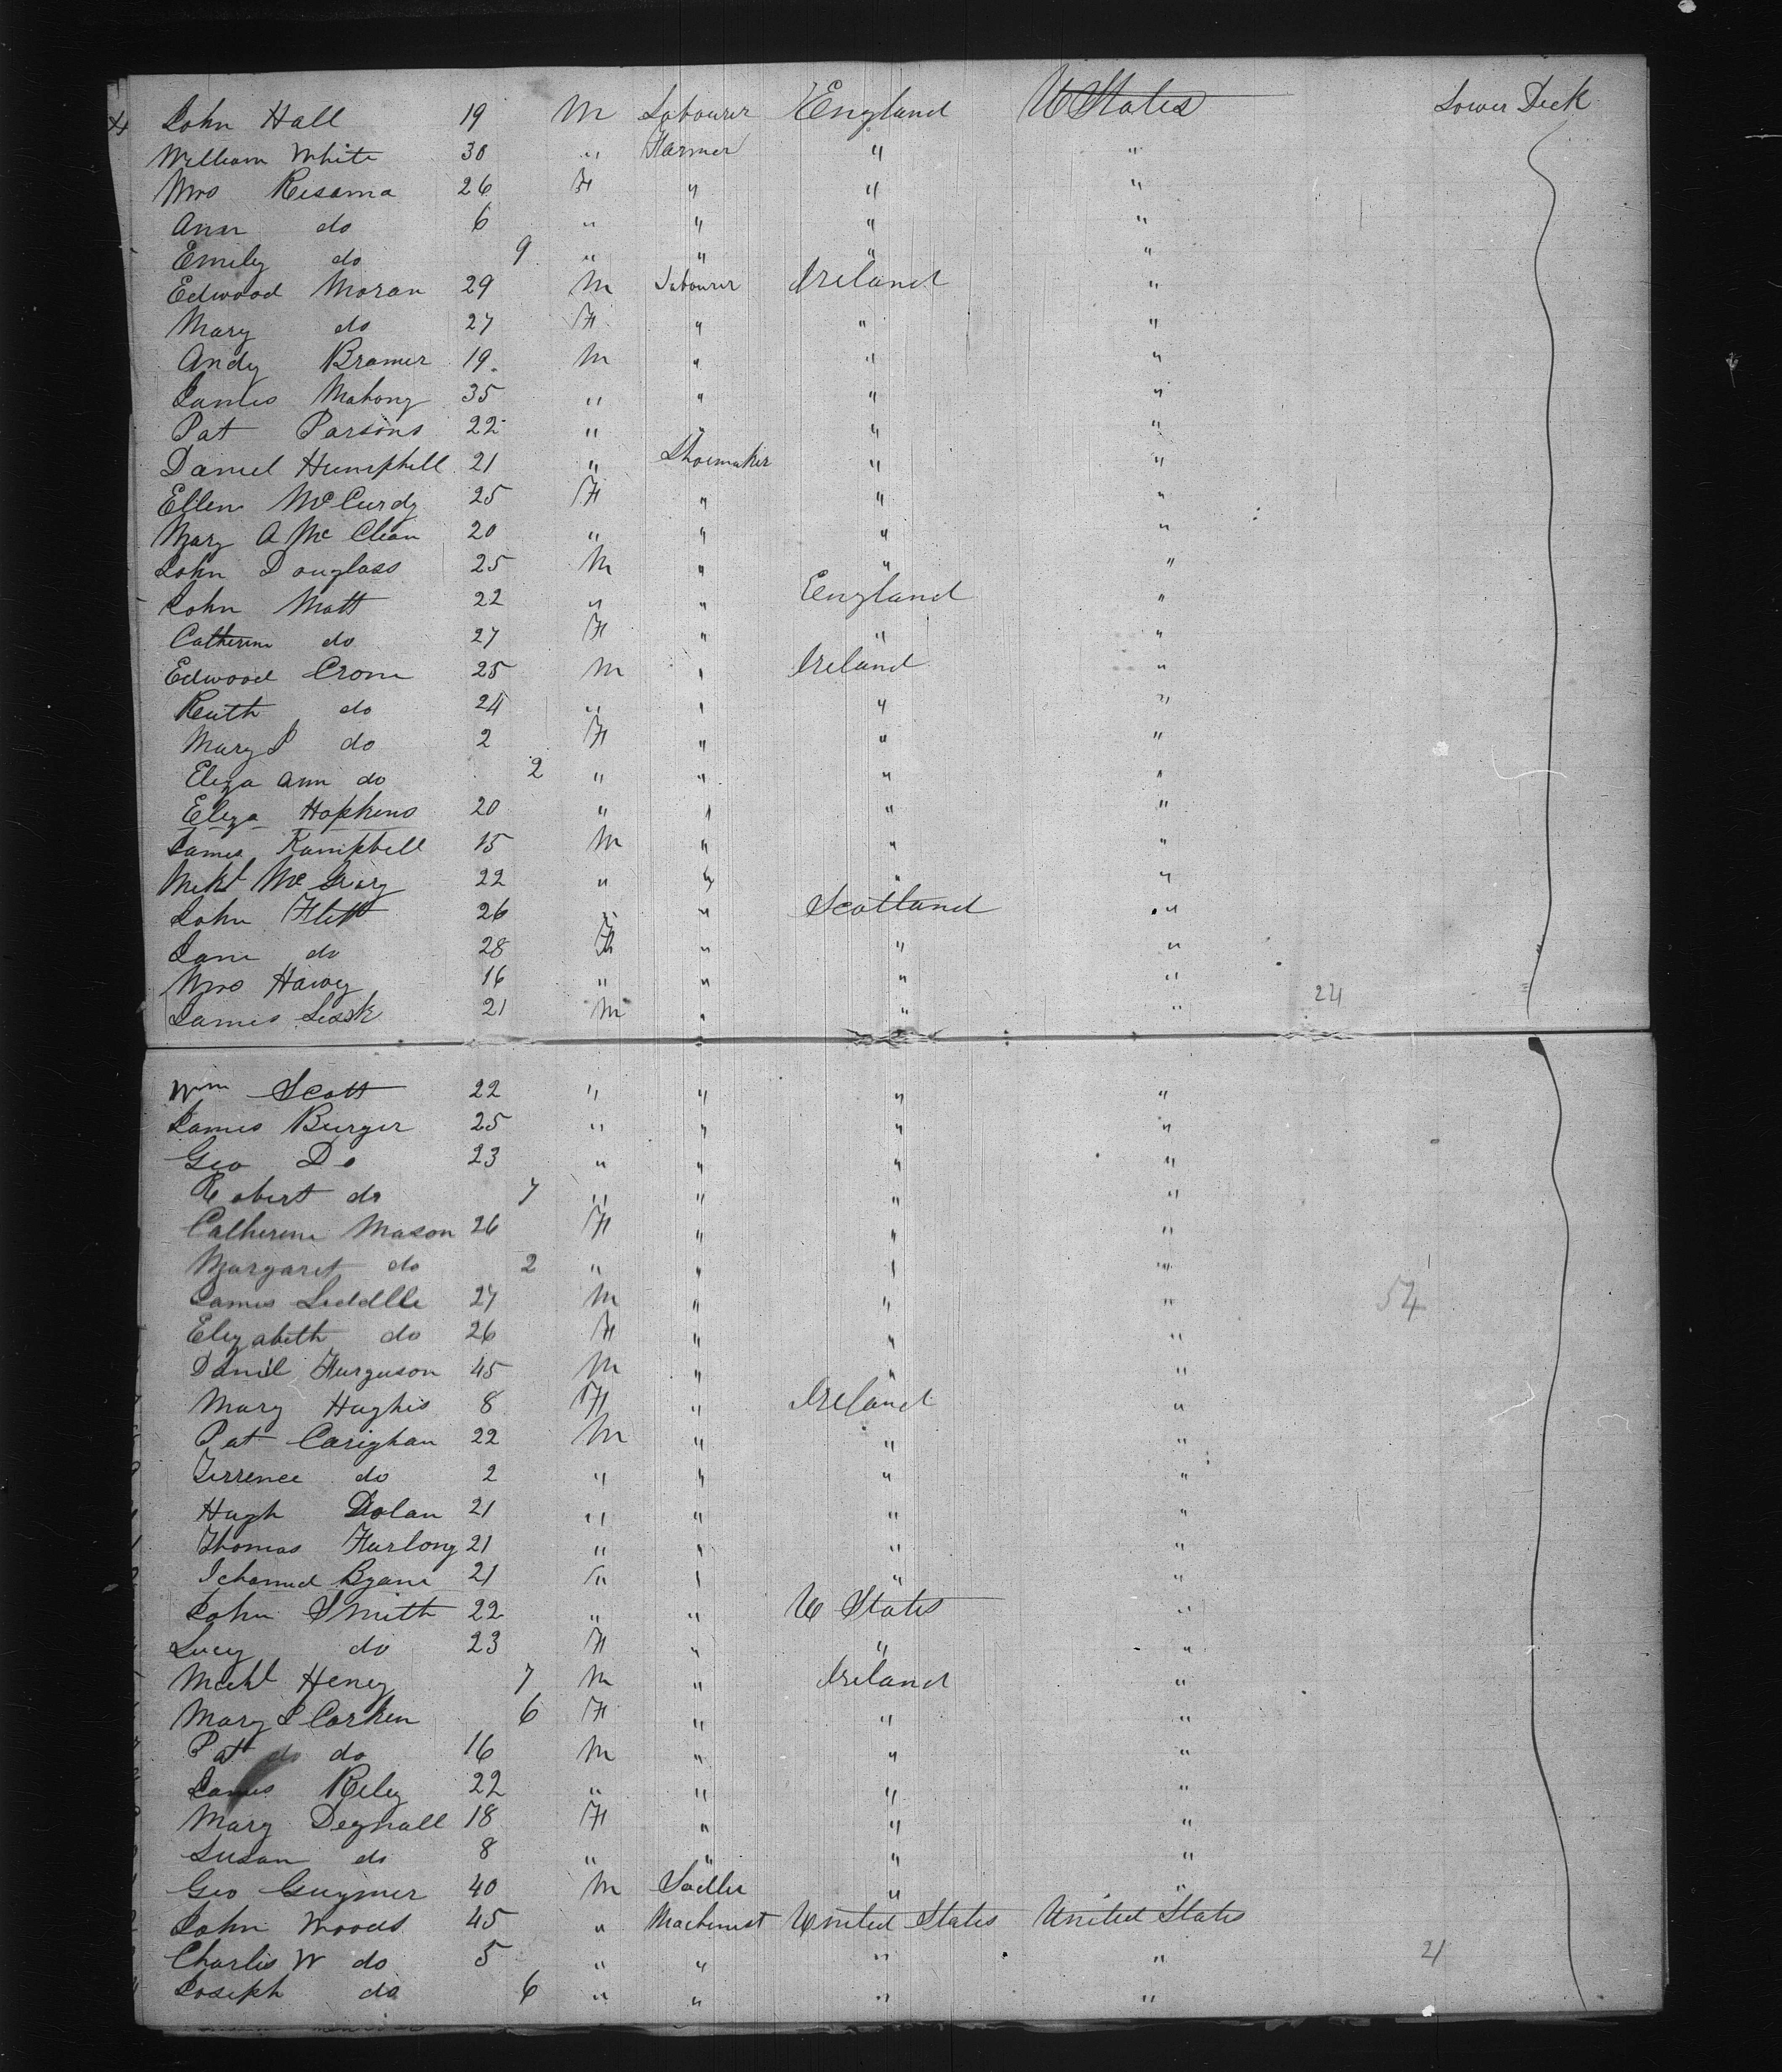 John Hall 19 M Labourer England U States Lower Deck
William White 30 " Farmer " "
Mrs Resama 26 F " " "
Ann do 6 " " " "
Emily do 9 " " " "
Edwood Moran 29 M Labourer Ireland "
Mary do 27 F " " "
Andy Bramer 19 M " " "
James Mahony 35 " " " "
Pat Parsons 22 " " " "
Daniel Humphell 21 " Shoemaker " "
Ellen McCurdy 25 F " " "
Mary A McClean 20 " " " "
John Douglass 25 M " " "
John Matt 22 " " England "
Catherine do 27 F " " "
Edwood Crone 25 M " Ireland "
Ruth do 24 " " " "
Mary J do 2 F " " "
Eliza Ann do 2 " " " "
Eliza Hopkins 20 " " " "
James Kamphell 15 M " " "
Mchl 22 " " " "
John Flett 26 " " Scotland "
Jane do 28 F " " "
Mrs Harvey 16 " " " "
James Lessk 21 M " " " 24
Wm Scott 22 " " " "
James Burger 25 " " " "
Geo Do 23 " " " "
Robert do 7 " " " "
Catherine Mason 26 F " " "
Margaret do 2 " " " "
James Liddlle 27 M " " " 54
Elizabeth do 26 F " " "
Daniel Furguson 45 M " " "
Mary Hughis 8 F " Ireland "
Pat Carighan 22 M " " "
Terrence do 2 " " " "
Hugh Dolan 21 " " " "
Thomas Furlong 21 " " " "
Byani 21 " " " "
John Smith 22 " " U States "
Lucy do 23 F " " "
Michl Heney 7 M " Ireland "
Mary J Corken 6 F " " "
Pat do do 16 M " " "
James Riley 22 " " " "
Mary Degnall 18 F " " "
Susan do 8 " " " "
Geo Guymer 40 M Sadler " "
John Woods 45 " Machinist United States United States
Charlis W do 5 " " " " 21
Joseph do 6 " " " "